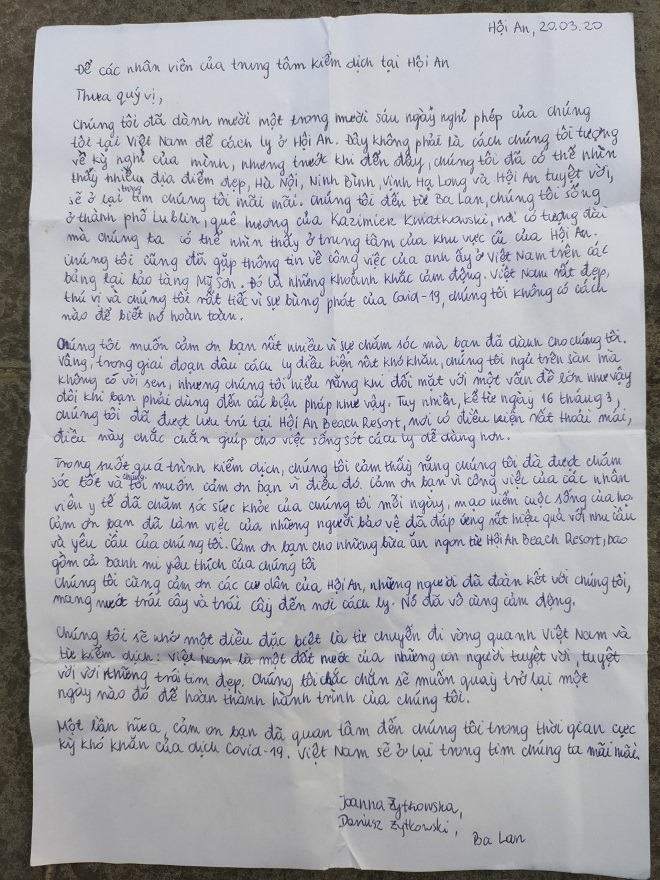 Hội An, 20.03.20
Để các nhân viên của trung tâm kiểm dịch tại Hội An
Thưa quý vị,
Chúng tôi đã dành mười một trong mười sáu ngày nghỉ phép của chúng
tôi tại Việt Nam để cách ly ở Hội An. Đây không phải là cách chúng tôi tượng
về kỳ nghỉ của mình, nhưng trước khi đến đây, chúng tôi đã có thể nhìn
thấy nhiều địa điểm đẹp, Hà Nội, Ninh Bình, Vịnh Hạ Long và Hội An tuyệt vời,
sẽ ở lại trong tim chúng tôi mãi mãi. Chúng tôi đến từ Ba Lan, chúng tôi sống
ở thành phố Lublin, quê hương của Kazimierz Kwiatkowski, nơi có tượng đài
mà chúng ta có thể nhìn thấy ở trung tâm của khu vực cũ của Hội An.
Chúng tôi cũng đã gặp thông tin về công việc của anh ấy ở Việt Nam trên các
bảng tại bảo tàng Mỹ Sơn. Đó là những khoảnh khắc cảm động. Việt Nam rất đẹp,
thú vị và chúng tôi rất tiếc vì sự bùng phát của Covid-19, chúng tôi không có cách
nào để biết nó hoàn toàn.
Chúng tôi muốn cảm ơn bạn rất nhiều vì sự chăm sóc mà bạn đã dành cho chúng tôi.
Vâng, trong giai đoạn đầu cách ly điều kiện rất khó khăn, chúng tôi ngủ trên sàn mà
không có vòi sen, nhưng chúng tôi hiểu rằng khi đối mặt với một vấn đề lớn như vậy
đôi khi bạn phải dùng đến các biện pháp như vậy. Tuy nhiên, kể từ ngày 16 tháng 3,
chúng tôi đã được lưu trú tại Hội An Beach Resort, nơi có điều kiện rất thoải mái,
điều này chắc chắn giúp cho việc sống sót cách ly dễ dàng hơn.
Trong suốt quá trình kiểm dịch, chúng tôi cảm thấy rằng chúng tôi đã được chăm
sóc tốt và chúng tôi muốn cảm ơn bạn vì điều đó. Cảm ơn bạn vì công việc của các nhân
viên y tế đã chăm sóc sức khỏe của chúng tôi mỗi ngày, mạo hiểm cuộc sống của họ.
Cảm ơn bạn đã làm việc của những người bảo vệ đã đáp ứng rất hiệu quả với nhu cầu
và yêu cầu của chúng tôi. Cảm ơn bạn cho những bữa ăn ngon từ Hội An Beach Resort, bao
gồm cả bánh mì yêu thích của chúng tôi
Chúng tôi cũng cảm ơn các cư dân của Hội An, những người đã đoàn kết với chúng tôi,
mang nước trái cây và trái cây đến nơi cách ly. Nó đã vô cùng cảm động.
Chúng tôi sẽ nhớ một điều đặc biệt là từ chuyến đi vòng quanh Việt Nam và
từ kiểm dịch: Việt Nam là một đất nước của những con người tuyệt vời, tuyệt
vời với những trái tim đẹp. Chúng tôi chắc chắn sẽ muốn quay trở lại một
ngày nào đó để hoàn thành hành trình của chúng tôi.
Một lần nữa, cảm ơn bạn đã quan tâm đến chúng tôi trong thời gian cực
kỳ khó khăn của dịch Covid-19. Việt Nam sẽ ở lại trong tim chúng ta mãi mãi.
Joanna Żytkowska,
Dariusz Żytkowski,
Ba Lan